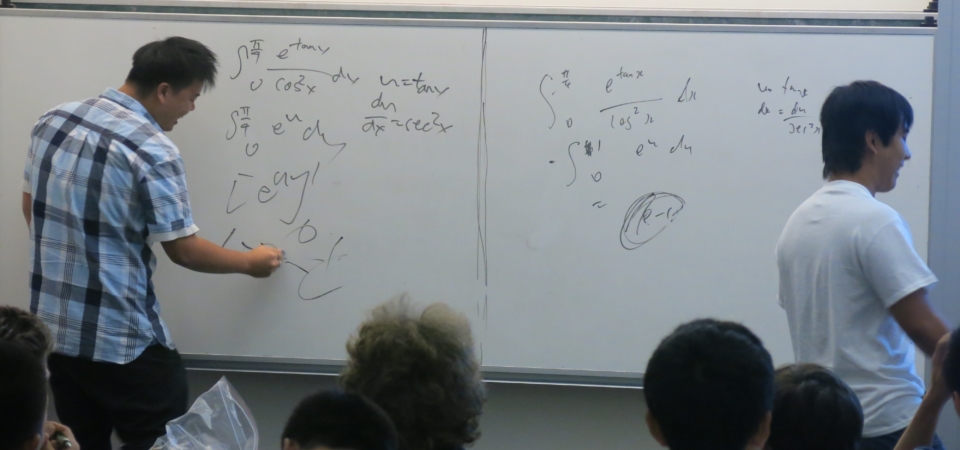 ∫₀^(π/4) e^(tanx)/cos²x dx u=tanx
du/dx = sec²x
∫₀^(π/4) e^u du
[e^u]₀¹
∫₀^(π/4) e^(tanx)/cos²x dx u= tanx
dx = du/sec²x
∫₀¹ e^u du
= e-1